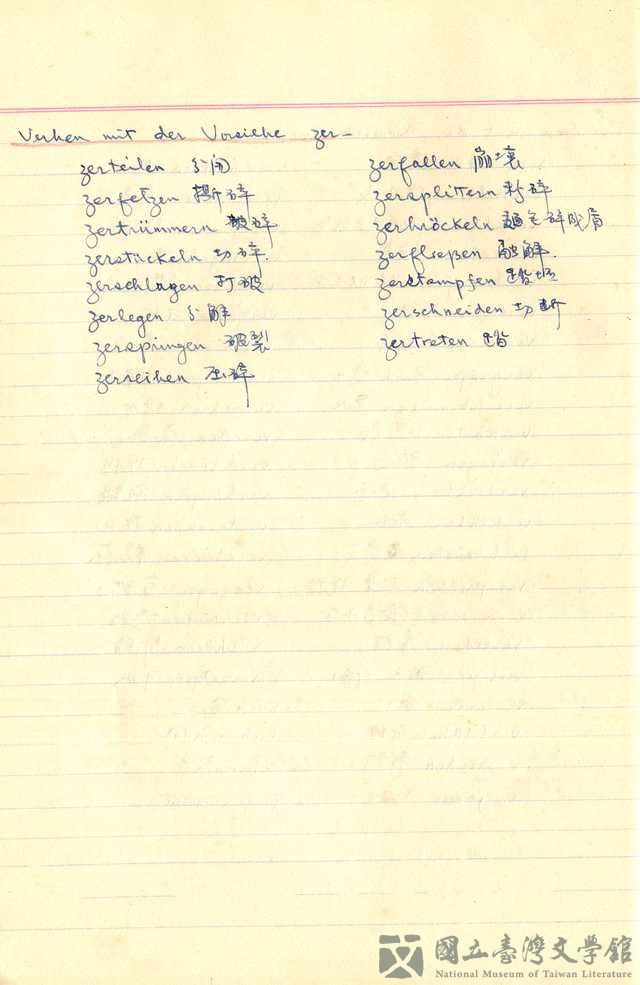 Verben mit der Vorsilbe zer-
zerteilen 分開
zerfetzen 撕碎
zertrümmern 破碎
zerstückeln 切碎.
zerschlagen 打破
zerlegen 分解
zerspringen 破裂
zerreiben 压碎
zerfallen 崩壞
zersplittern 碎
zerbröckeln 麵包碎成屑
zerfließen 融解.
zerstampfen 踏
zerschneiden 切断
zertreten 踏
國立臺灣文學館
National Museum of Taiwan Literature